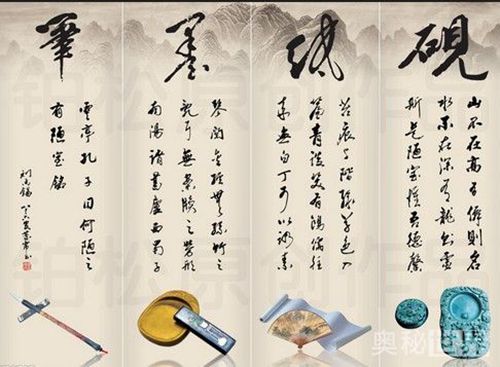 硯
山不在高有僊則名
水不在深有龍則靈
斯是陋室惟吾德馨
纸
苔痕上階綠草色入
簾青談笑有鴻儒往
來無白丁可以調素
墨
琴閱金經無絲竹之
亂耳無案牘之勞形
南陽諸葛廬西蜀子
筆
雲亭孔子曰何陋之
有陋室銘
劉禹錫
铂松原创作品
奥秘世界